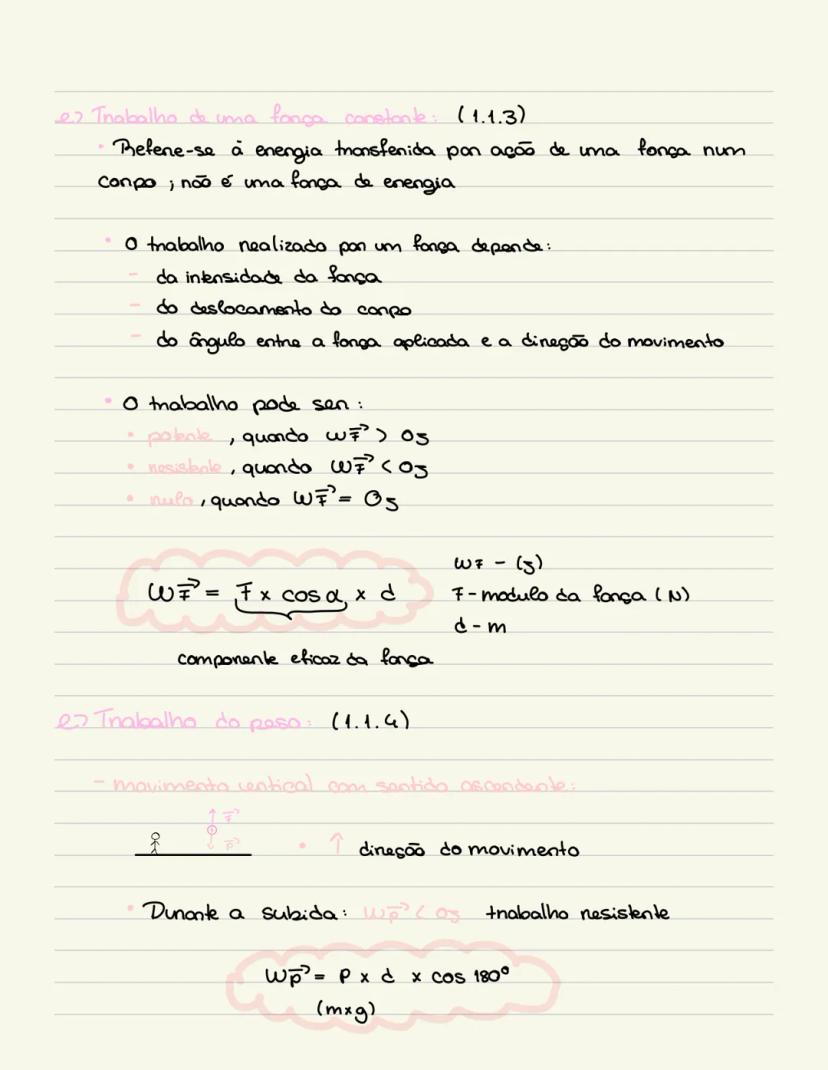 e> Trabalho de uma força constante: (1.1.3)
• Refere-se à energia transferida por ação de uma força num
corpo ; não é uma força de energia
• O trabalho realizado por um força depende:
- da intensidade da força
- do deslocamento do corpo
- do ângulo entre a força aplicada e a direção do movimento
• O trabalho pode ser :
• potente , quando WF⃗ > 0J
• resistente , quando WF⃗ < 0J
• nulo , quando WF⃗ = 0J
WF⃗ = F x cos α x d
WF - (J)
F - modulo da força (N)
d - m
componente eficaz da força
e> Trabalho do peso: (1.1.4)
- movimento vertical com sentido ascendente:
F⃗
P⃗
• ↑ direção do movimento
• Durante a subida: Wp⃗ < 0J trabalho resistente
Wp⃗ = P x d x cos 180º
(mxg)